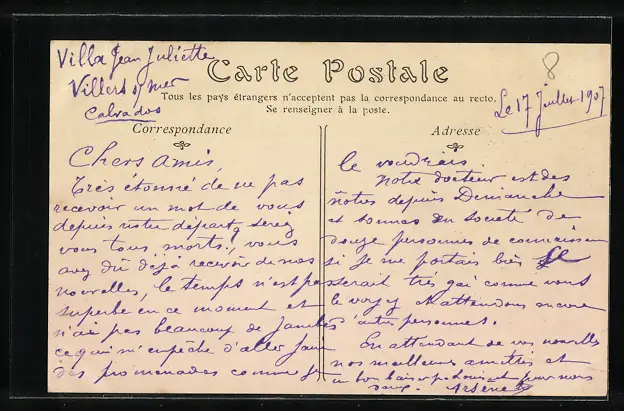 Villa Jean Juliette
Villers s/ mer
Calvados
8
Carte Postale
Tous les pays étrangers n'acceptent pas la correspondance au recto.
Se renseigner à la poste.
Le 17 Juillet 1907
Correspondance
Chers Amis,
Très étonné de ne pas
recevoir un mot de vous
depuis notre départ, seriez
vous tous morts, vous
avez dû déjà recevoir de nos
nouvelles, le temps n'est pas
superbe en ce moment et
n'ai pas beaucoup de Jambes
ce qui m'empêche d'aller faire
des promenades comme je
Adresse
le voudrais.
Notre docteur est des
nôtres depuis Dimanche
et sommes en société de
douze personnes de connaissance
si je me portais bien
serait très gai comme vous
le voyez N attendons encore
d'autres personnes.
En attendant de vos nouvelles
nos meilleures amitiés et
un bon baiser Louis et pour nous
Arsène